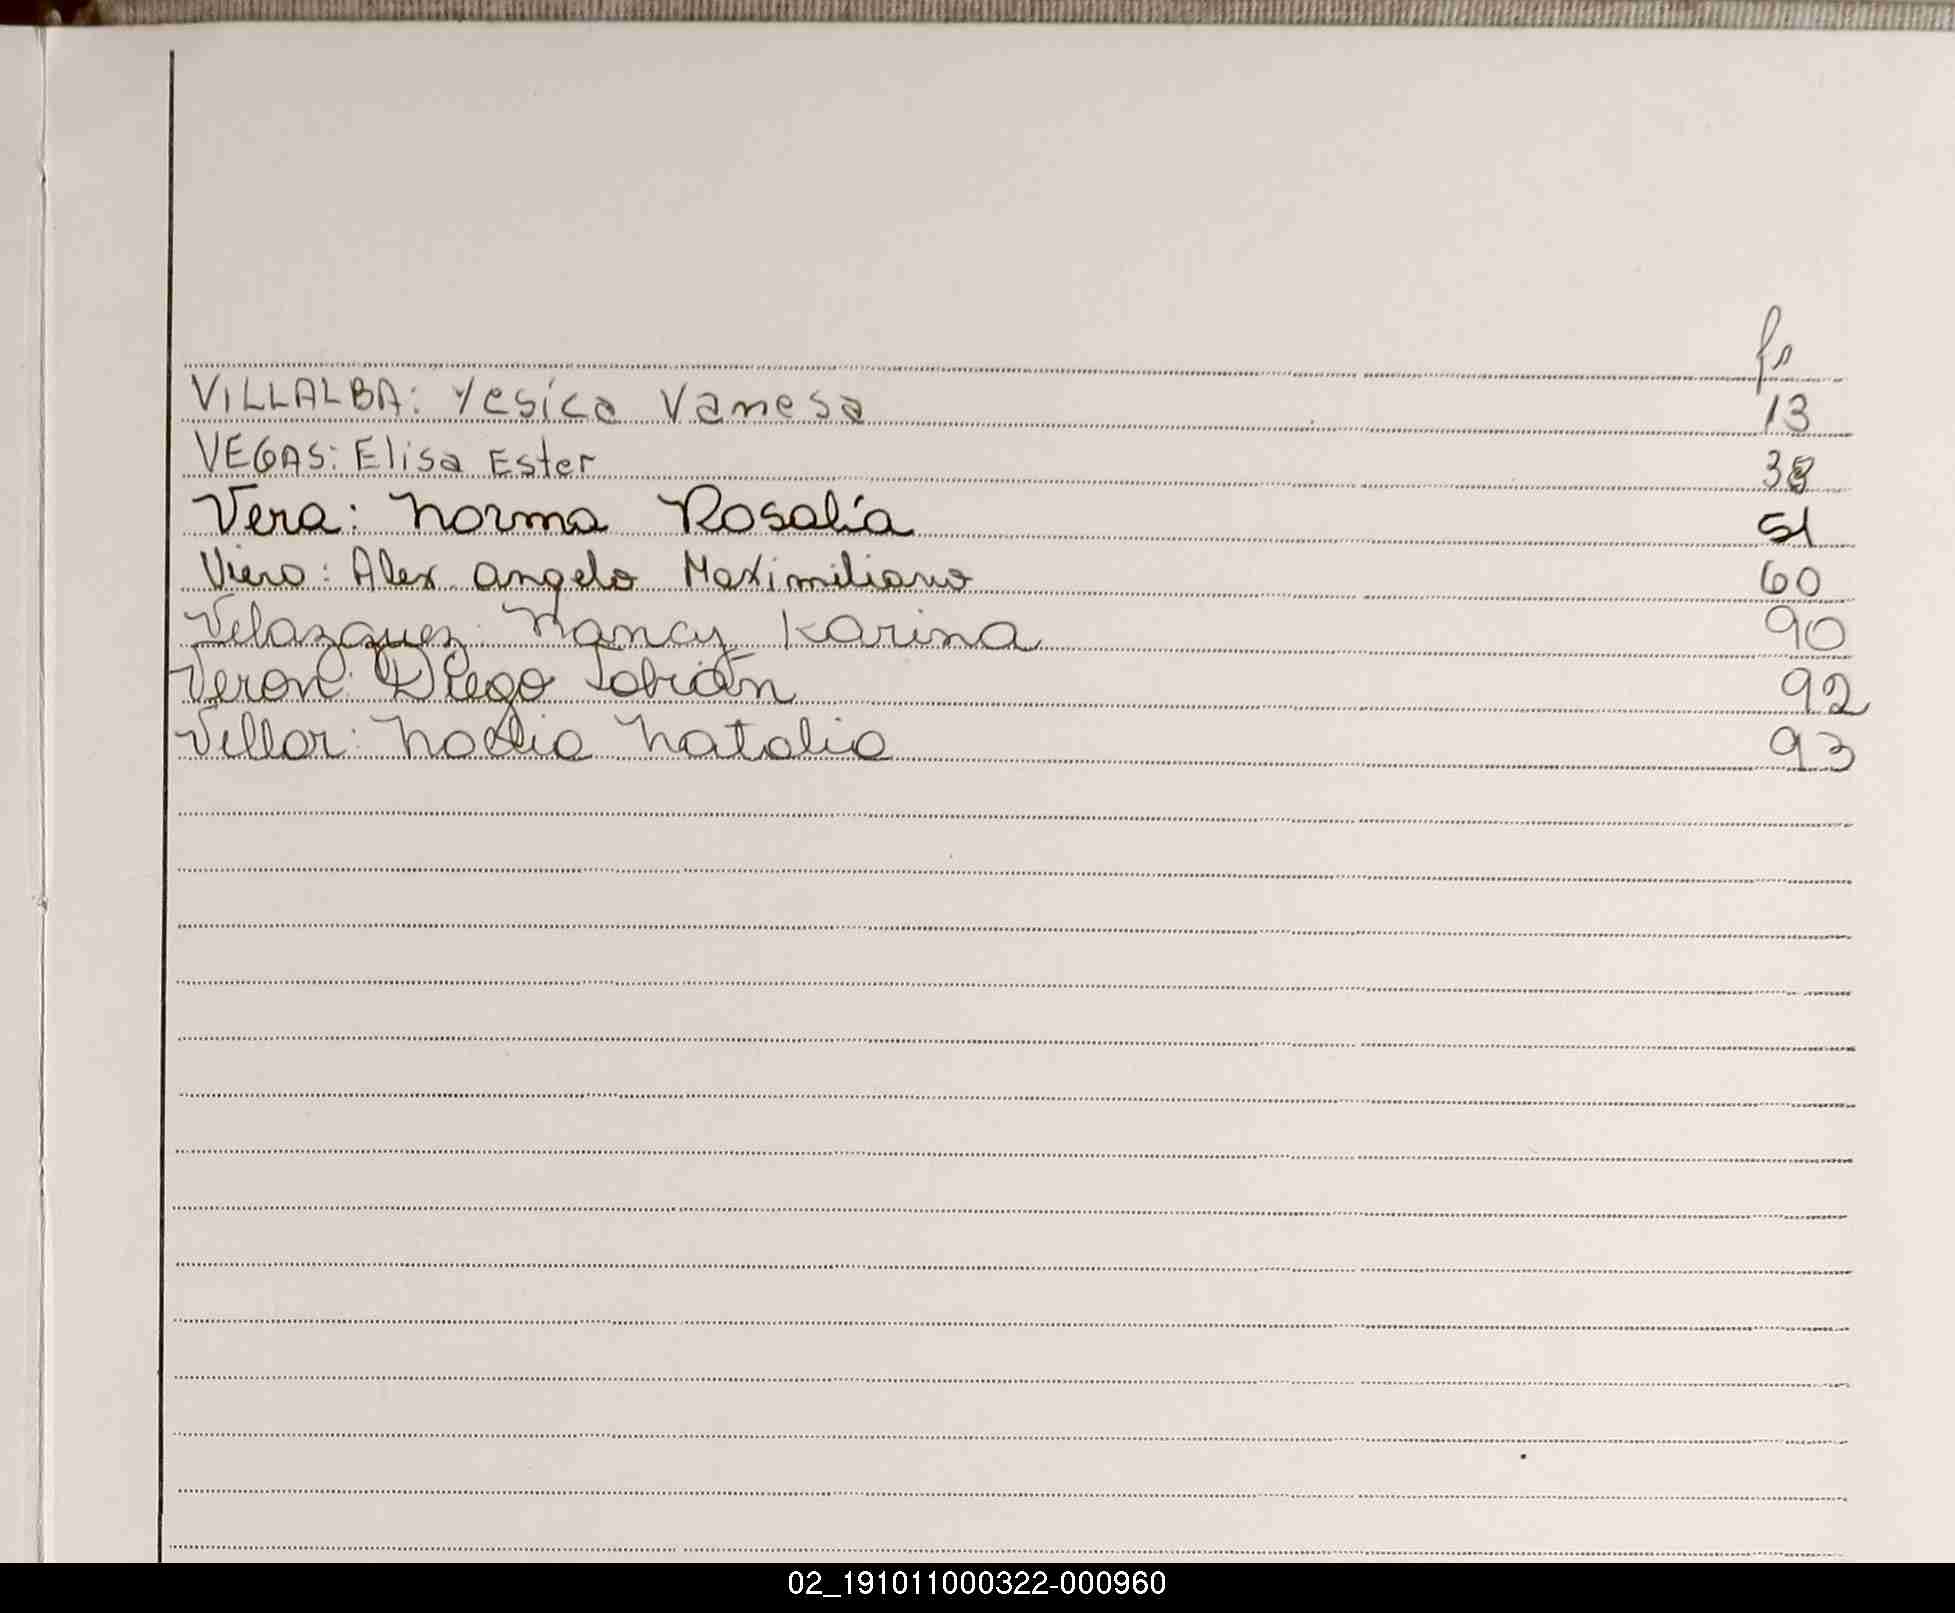 fs
VILLALBA: Yesica Vanesa 13
VEGAS: Elisa Ester 38
Vera: Norma Rosalía 51
Viero: Alex Angelo Maximiliano 60
Velazquez: Nancy Karina 90
Veron: Diego Fabián 92
Villar: Noelia Natalia 93
02_191011000322-000960